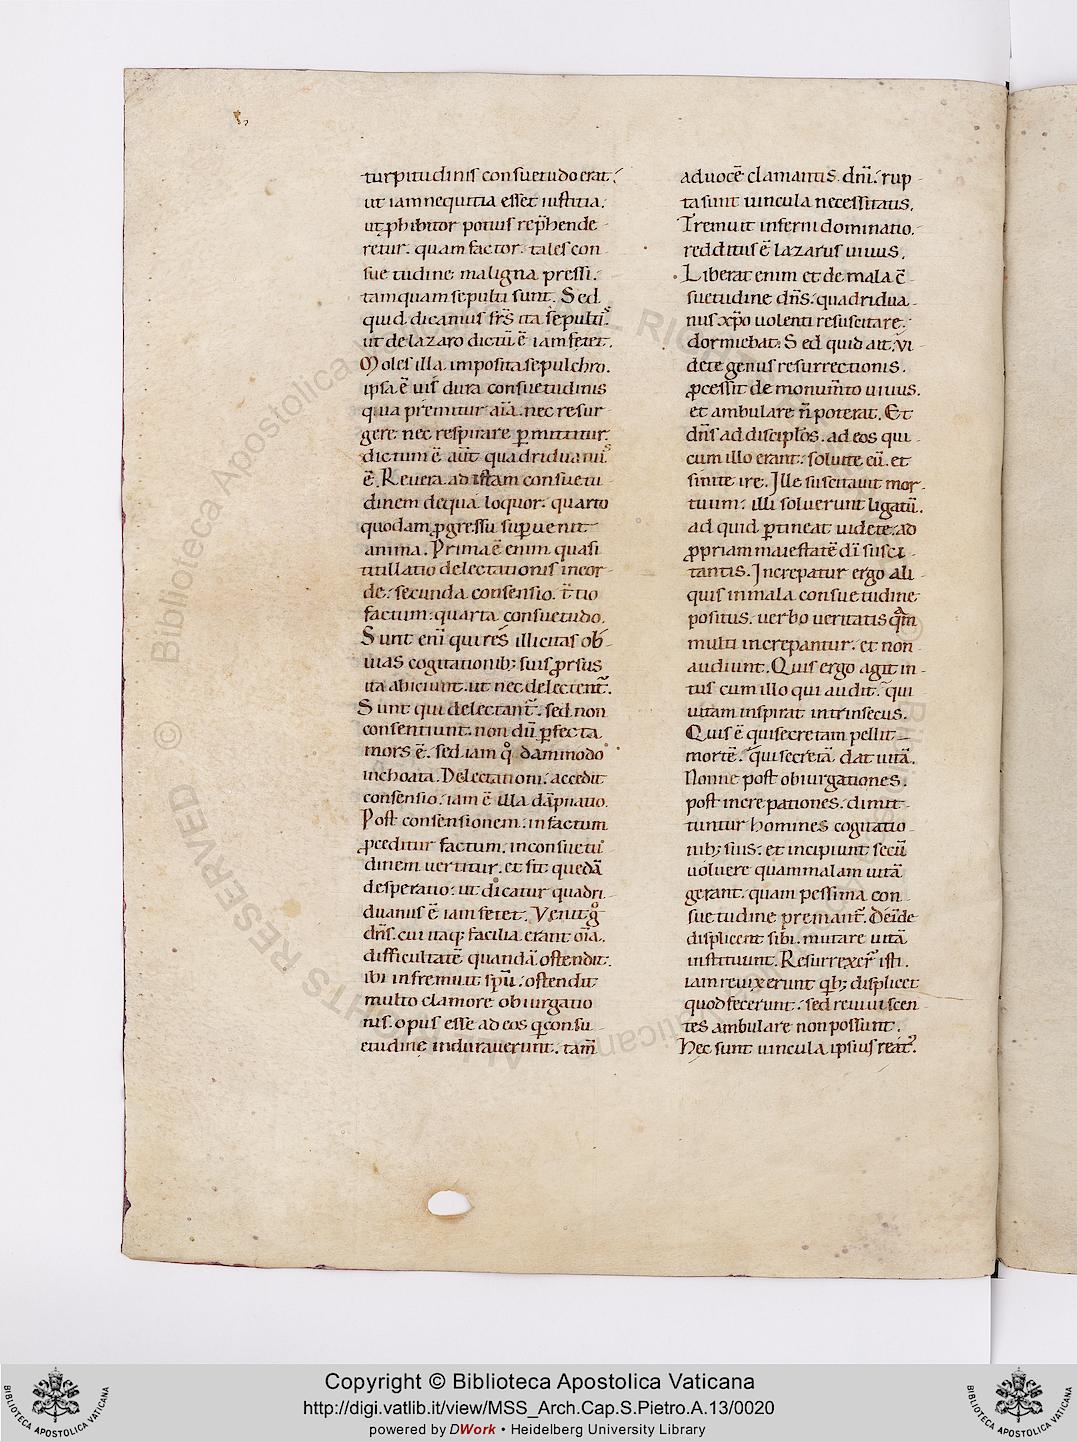 turpitudinis consuetudo erat.
ut iam nequitia esset iustitia.
ut ꝓhibitor potius rep̄hende
retur. quam factor. tales con
suetudine maligna pressi.
tamquam sepulti sunt. Sed
quid dicamus fr̄s ita sepulti.ˢ
ut de lazaro dictū ē iam fetet.
Moles illa imposita sepulchro.
ipsa ē uis dura consuetudinis
quia premitur aīa. nec resur
gere. nec respirare ꝑmittitur.
dictum ē aūt quadriduanuˢ
ē. Reuera ad istam consuetu
dinem de qua loquor. quarto
quodam ꝓgressu suꝑuenit
anima. Prima ē enim quasi
titillatio delectationis in cor
de. secunda consensio. t̄tio
factum. quarta consuetudo.
Sunt enī qui res illicitas ob
uias cogitationib; suis ꝓrsus
ita abiciunt. ut nec delectent̄.
Sunt qui delectant̄. sed non
consentiunt. non dū ꝑfecta
mors ē. sed iam qͦ dammodo
inchoata. Delectationi. accedit
consensio. iam ē illa dāpnatio.
Post consensionem. in factum
ꝓceditur factum. in consuetu
dinem uertitur. et fit quedā
desperatio. ut dicatur quadri
duanus ē iam fetet. Venit gͦ
dn̄s. cui itaq; facilia erant oīa.
difficultatē quandā ostendit.
ibi infremuit sp̄u. ostendit
multo clamore obiurgatio
nis. opus esse ad eos q̄ consu
etudine indurauerunt. tam̄
ad uocē clamantis dn̄i. rup
ta sunt uincula necessitatis.
Tremuit inferni dominatio.
redditus ē lazarus uiuus.
Liberat enim et de mala c̄
suetudine dn̄s. quadridua
nus xp̄o uolenti resuscitare.
dormiebat. Sed quid ait. Vi
dete genus resurrectionis.
ꝓcessit de monum̄to uiuus.
et ambulare n̄ poterat. Et
dn̄s ad discipl̄os. ad eos qui
cum illo erant. soluite eū. et
sinite ire. Ille suscitauit mor
tuum. illi soluerunt ligatū.
ad quid ꝑtineat uidete. ad
ꝓpriam maiestatē dī susci
tantis. Increpatur ergo ali
quis in mala consuetudine
positus. uerbo ueritatis qͣm
multi increpantur. et non
audiunt. Quis ergo agit in
tus cum illo qui audit. qui
uitam inspirat intrinsecus.
Quis ē qui secretam pellit
mortē. qui secretā dat uitā.
Nonne post obiurgationes.
post increpationes. dimit
tuntur homines cogitatio
nib; suis. et incipiunt secū
uoluere quam malam uitā
gerant. quam pessima con
suetudine premant̄. Deīde
displicent sibi. mutare uitā
instituunt. Resurrexer̄ isti.
iam reuixerunt qͥb; displicet
quod fecerunt. sed reuiuiscen
tes ambulare non possunt.
Hec sunt uincula ipsius reatꝰ.
© Biblioteca Apostolica Vaticana ALL RIGHTS RESERVED
Copyright © Biblioteca Apostolica Vaticana
http://digi.vatlib.it/view/MSS_Arch.Cap.S.Pietro.A.13/0020
powered by DWork • Heidelberg University Library
BIBLIOTECA APOSTOLICA VATICANA
BIBLIOTECA APOSTOLICA VATICANA